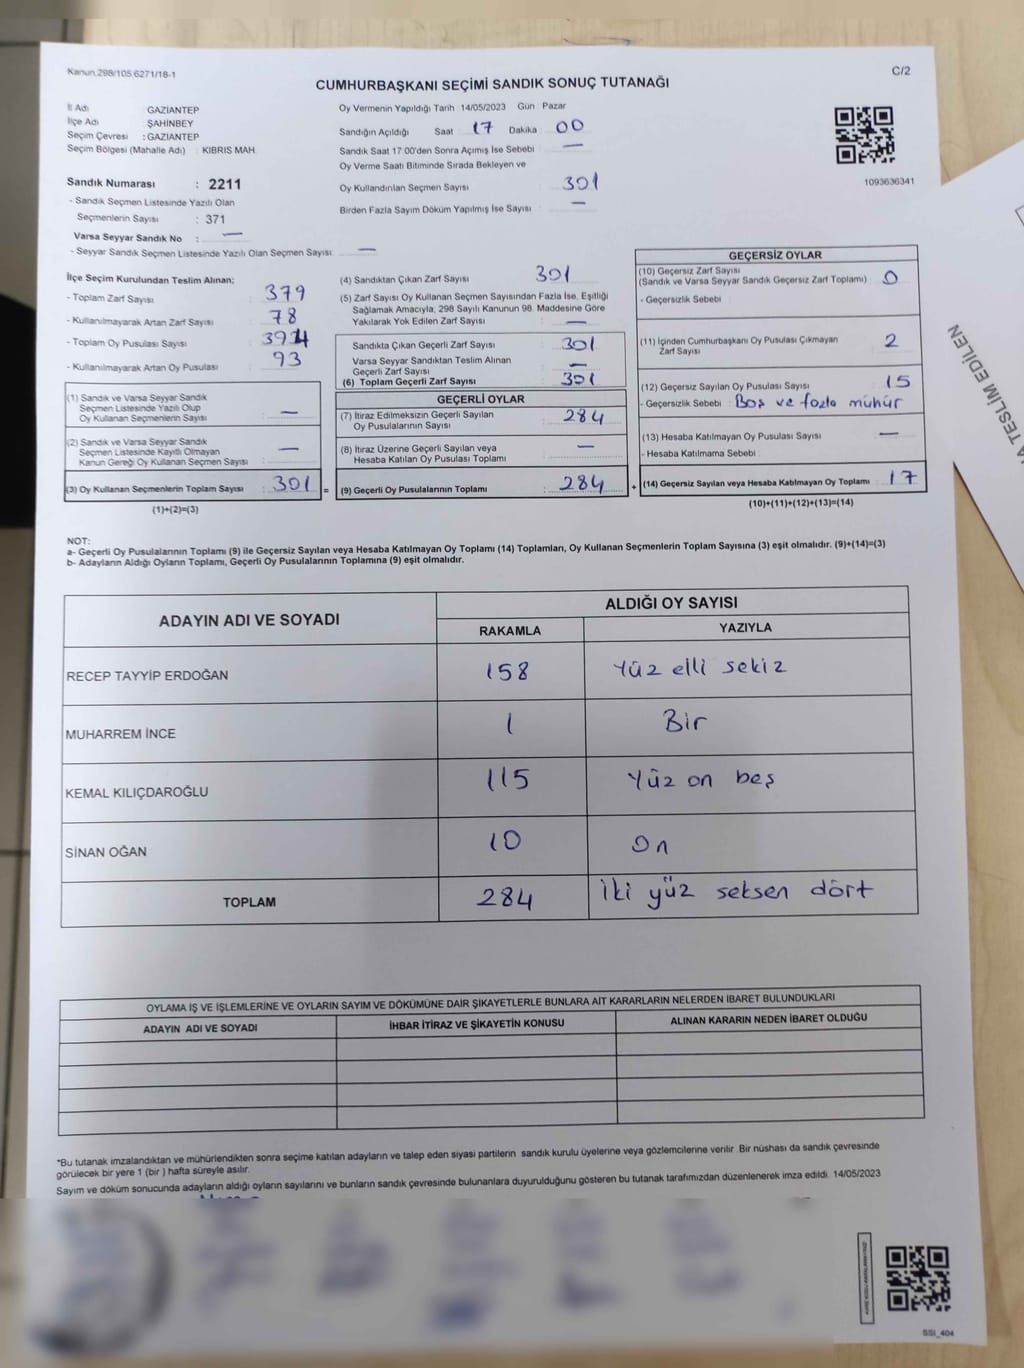 Kanun.298/105,6271/18-1
C/2
CUMHURBAŞKANI SEÇİMİ SANDIK SONUÇ TUTANAĞI
İl Adı GAZİANTEP
İlçe Adı ŞAHİNBEY
Seçim Çevresi : GAZİANTEP
Seçim Bölgesi (Mahalle Adı) : KIBRIS MAH.
Oy Vermenin Yapıldığı Tarih :14/05/2023 Gün Pazar
Sandığın Açıldığı Saat 17 Dakika 00
Sandık Saat 17:00'den Sonra Açımış İse Sebebi : —
Oy Verme Saati Bitiminde Sırada Bekleyen ve
Oy Kullandırılan Seçmen Sayısı : 301
Birden Fazla Sayım Döküm Yapılmış İse Sayısı : —
1093636341
Sandık Numarası : 2211
- Sandık Seçmen Listesinde Yazılı Olan
Seçmenlerin Sayısı : 371
Varsa Seyyar Sandık No : —
- Seyyar Sandık Seçmen Listesinde Yazılı Olan Seçmen Sayısı: —
İlçe Seçim Kurulundan Teslim Alınan;
- Toplam Zarf Sayısı : 379
- Kullanılmayarak Artan Zarf Sayısı : 78
- Toplam Oy Pusulası Sayısı :
- Kullanılmayarak Artan Oy Pusulası : 93
(1) Sandık ve Varsa Seyyar Sandık
Seçmen Listesinde Yazılı Olup
Oy Kullanan Seçmenlerin Sayısı : —
(2) Sandık ve Varsa Seyyar Sandık
Seçmen Listesinde Kayıtlı Olmayan
Kanun Gereği Oy Kullanan Seçmen Sayısı : —
(3) Oy Kullanan Seçmenlerin Toplam Sayısı : 301 =
(1)+(2)=(3)
(4) Sandıktan Çıkan Zarf Sayısı : 301
(5) Zarf Sayısı Oy Kullanan Seçmen Sayısından Fazla İse, Eşitliği
Sağlamak Amacıyla; 298 Sayılı Kanunun 98. Maddesine Göre
Yakılarak Yok Edilen Zarf Sayısı : —
Sandıkta Çıkan Geçerli Zarf Sayısı : 301
Varsa Seyyar Sandıktan Teslim Alınan
Geçerli Zarf Sayısı : —
(6) Toplam Geçerli Zarf Sayısı : 301
GEÇERLİ OYLAR
(7) İtiraz Edilmeksizin Geçerli Sayılan
Oy Pusulalarının Sayısı : 284
(8) İtiraz Üzerine Geçerli Sayılan veya
Hesaba Katılan Oy Pusulası Toplamı : —
(9) Geçerli Oy Pusulalarının Toplamı : 284 +
GEÇERSİZ OYLAR
(10) Geçersiz Zarf Sayısı
(Sandık ve Varsa Seyyar Sandık Geçersiz Zarf Toplamı) : 0
- Geçersizlik Sebebi :
(11) İçinden Cumhurbaşkanı Oy Pusulası Çıkmayan
Zarf Sayısı : 2
(12) Geçersiz Sayılan Oy Pusulası Sayısı : 15
- Geçersizlik Sebebi : Boş ve fazla mühür
(13) Hesaba Katılmayan Oy Pusulası Sayısı : —
- Hesaba Katılmama Sebebi :
(14) Geçersiz Sayılan veya Hesaba Katılmayan Oy Toplamı : 17
(10)+(11)+(12)+(13)=(14)
NOT:
a- Geçerli Oy Pusulalarının Toplamı (9) ile Geçersiz Sayılan veya Hesaba Katılmayan Oy Toplamı (14) Toplamları, Oy Kullanan Seçmenlerin Toplam Sayısına (3) eşit olmalıdır. (9)+(14)=(3)
b- Adayların Aldığı Oyların Toplamı, Geçerli Oy Pusulalarının Toplamına (9) eşit olmalıdır.
ADAYIN ADI VE SOYADI ALDIĞI OY SAYISI
RAKAMLA YAZIYLA
RECEP TAYYİP ERDOĞAN 158 Yüz elli sekiz
MUHARREM İNCE 1 Bir
KEMAL KILIÇDAROĞLU 115 Yüz on beş
SİNAN OĞAN 10 On
TOPLAM 284 İki yüz seksen dört
OYLAMA İŞ VE İŞLEMLERİNE VE OYLARIN SAYIM VE DÖKÜMÜNE DAİR ŞİKAYETLERLE BUNLARA AİT KARARLARIN NELERDEN İBARET BULUNDUKLARI
ADAYIN ADI VE SOYADI İHBAR İTİRAZ VE ŞİKAYETİN KONUSU ALINAN KARARIN NEDEN İBARET OLDUĞU
*Bu tutanak imzalandıktan ve mühürlendikten sonra seçime katılan adayların ve talep eden siyasi partilerin sandık kurulu üyelerine veya gözlemcilerine verilir. Bir nüshası da sandık çevresinde
görülecek bir yere 1 (bir ) hafta süreyle asılır.
Sayım ve döküm sonucunda adayların aldığı oyların sayılarını ve bunların sandık çevresinde bulunanlara duyurulduğunu gösteren bu tutanak tarafımızdan düzenlenerek imza edildi. 14/05/2023
SSI_404
TESLİM EDİLEN